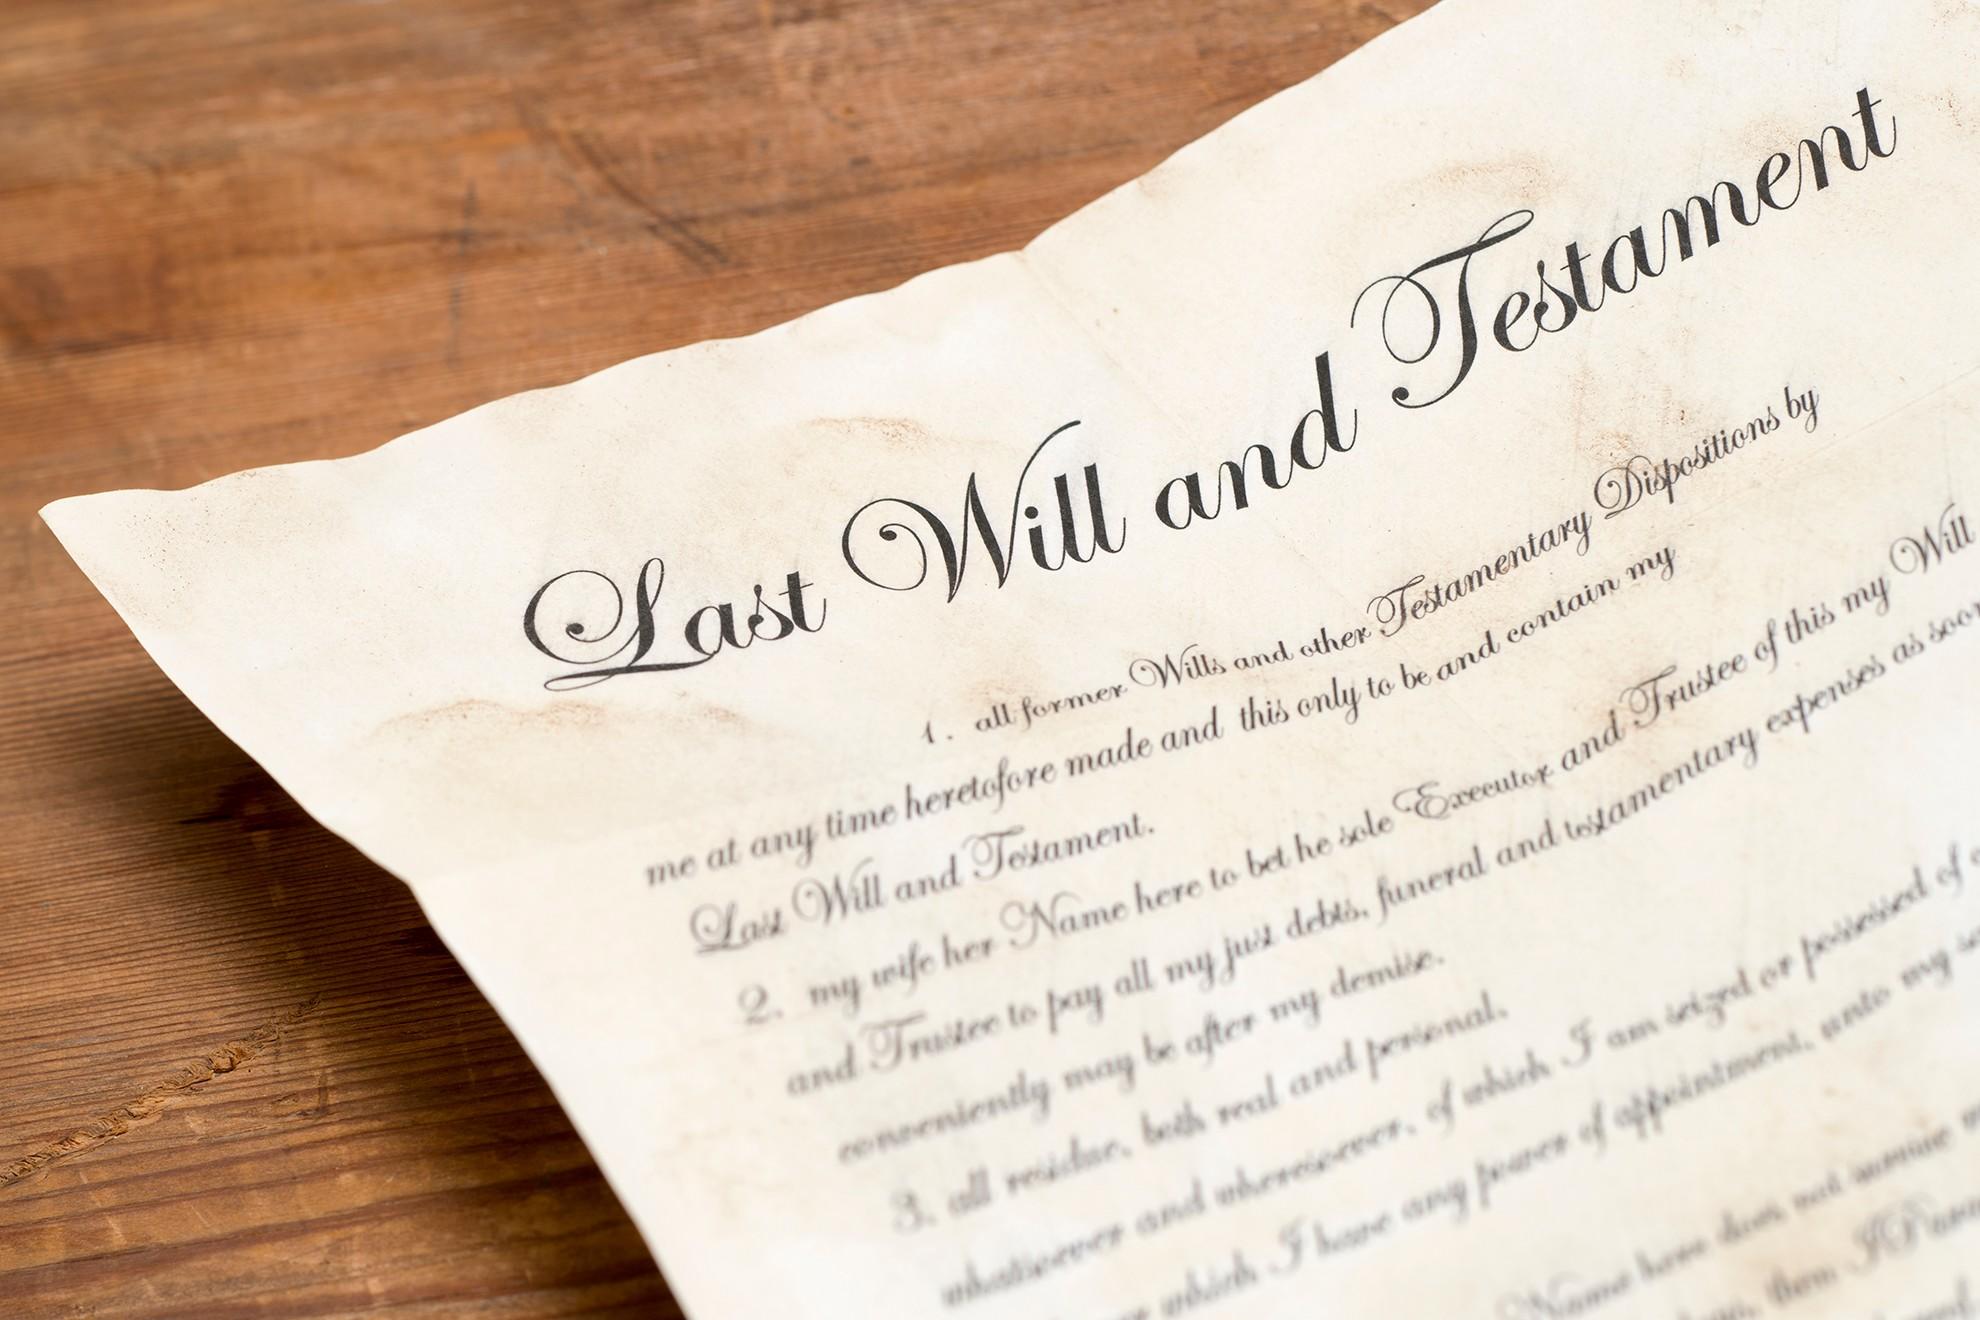 Last Will and Testament
1. all former Wills and other Testamentary Dispositions by
me at any time heretofore made and this only to be and contain my
Last Will and Testament.
2. my wife her Name here to bet he sole Executor and Trustee of this my Will
and Trustee to pay all my just debts, funeral and testamentary expenses as soon
conveniently may be after my demise.
3. all residue, both real and personal.
whatsoever and wheresoever, of which I am seized or possessed of
over which I have any power of appointment, unto my
Name here does not survive
then